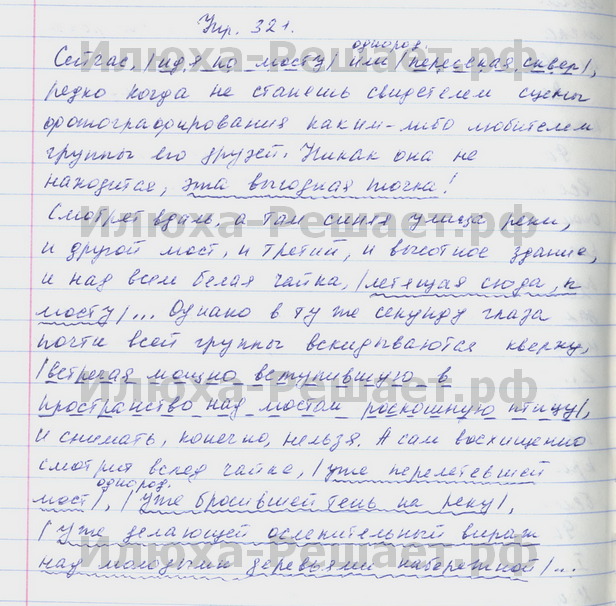 Упр. 321.
однород.
Сейчас, /идя по мосту/ или /пересекая сквер/,
редко когда не станешь свидетелем сцены
фотографирования каким-либо любителем
группы его друзей. Никак она не
находится, эта выгодная точка!
Смотрят вдаль, а там синяя улица реки,
и другой мост, и третий, и высотное здание,
и над всем белая чайка, /летящая сюда, к
мосту/... Однако в ту же секунду глаза
почти всей группы вскидываются кверху,
/встречая мощно вступившую в
пространство над мостом роскошную птицу/,
и снимать, конечно, нельзя. А сам восхищенно
смотрит вслед чайке, /уже перелетевшей
однород.
мост/, /уже бросившей тень на реку/,
/уже делающей ослепительный вираж
над молодыми деревьями набережной/...
Илюха-Решает.рф
Илюха-Решает.рф
Илюха-Решает.рф
Илюха-Решает.рф